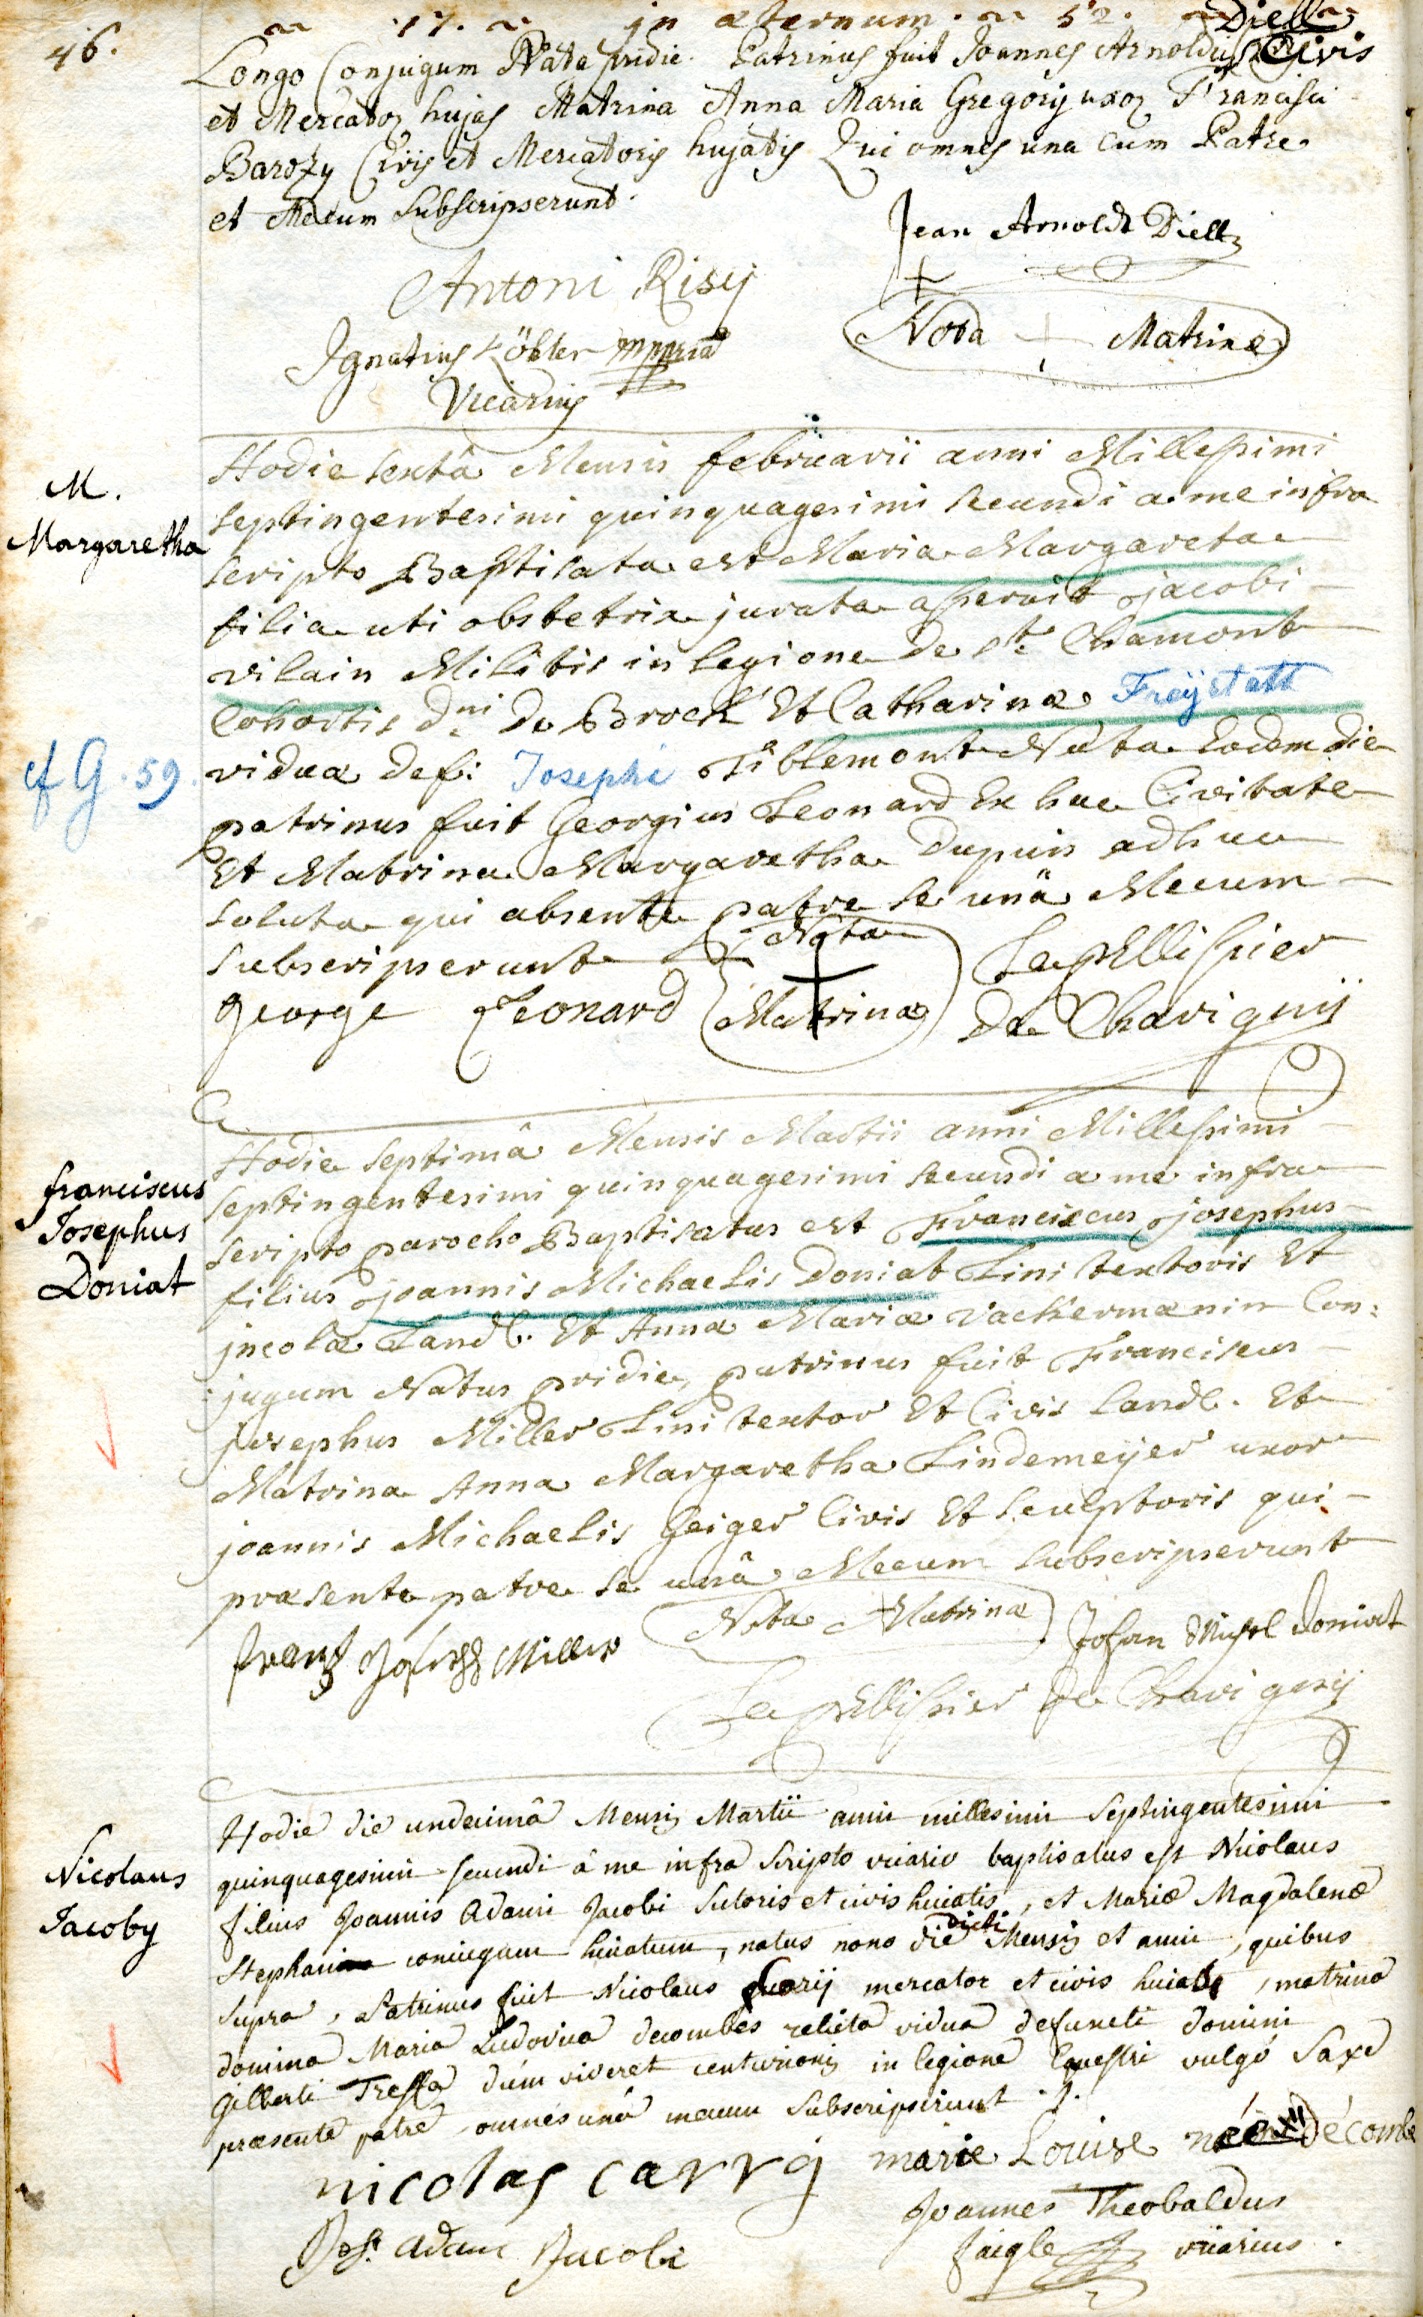 46.
17. in æternum. 52.
Diell
Longo Conjugum Nata pridie. Patrinus fuit Joannes Arnoldus Civis
et Mercator hujas Matrina Anna Maria Gregorij uxor Francisci
Barozy Civis et Mercatoris hujatis Qui omnes una cum Patre
et Mecum Subscripserunt.
Jean Arnoldt Diell
Antoni Risij
Nota + Matrinæ
Ignatius Köbler mppria
Vicarius
M.
Margaretha
Hodie sexta Mensis februarii anni Millesimi
septingentesimi quinquagesimi secundi a me infra
scripto Baptisata est Maria Margareta
filia uti obstetrix jurata asseruit jacobi
vilain Militis in legione de st. Chamont
Cohortis dni. De Brock Et Catharinæ Freÿstatt
viduæ def: Josephi Tiblemont Nata Eodem die
cf G. 59.
patrinus fuit Georgius Leonard Ex hac Civitate
Et Matrina Margaretha Dupuis adhuc
soluta qui absente patre se unâ Mecum
subscripserunt
George Leonard
Nota
+
Matrinæ
Le pellissier
De Chavignij
franciscus
Josephus
Doniat
Hodie septimâ Mensis Martii anni Millesimi
septingentesimi quinquagesimi secundi a me infra
scripto parocho Baptisatus est Franciscus josephus
filius joannis Michaelis Doniat Lini textoris Et
jncolæ Landl. Et Anna Mariæ Vackermænin Con:
jugum Natus pridie, patrinus fuit Franciscus
josephus Miller Lini textor Et Civis Landl. Et
Matrina Anna Margaretha Lindemeÿer uxor
joannis Michaelis Geiger Civis Et sculptoris qui
præsente patre se unâ Mecum subscripserunt
Nota + Matrinæ
Frantz Joseph Miller
Johan Michel Doniat
Le pellissier De Chavignij
Nicolaus
Jacoby
Hodie die undecimâ Mensis Martii anni millesimi Septingentesimi
quinquagesimi secundi â me infra Scripto vicario baptisatus est Nicolaus
filius Joannis Adami Jacobi Sutoris et civis huiatis, et Mariæ Magdalenæ
Stephani coniugum huiatum, natus nono die dicti Mensis et anni, quibus
supra, Patrinus fuit Nicolaus mercator et civis huias, matrina
domina Maria Ludovica decombes relicta vidua defuncti domini
Gilberti Tressa dum viveret centurionis in legione Equestri vulgò Saxe
præsente patre omnes unâ mecum subscripserunt
nicolas carrÿ
marie Louise née décombe
Joh. adam Jacobi
Joannes Theobaldus
faigle vicarius.